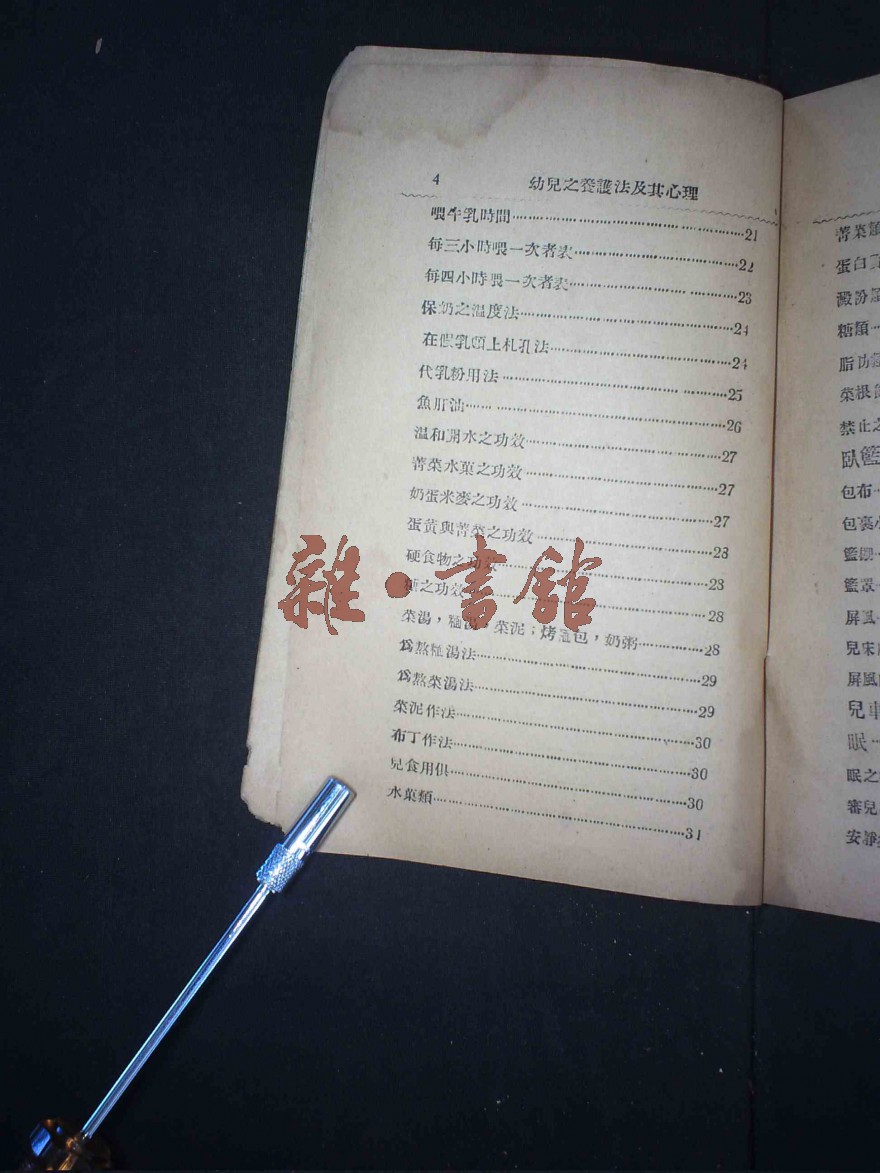 4 幼兒之養護法及其心理
喂牛乳時間……21
每三小時喂一次者表……22
每四小時喂一次者表……23
保奶之温度法……24
在假乳頭上札孔法……24
代乳粉用法……25
魚肝油……26
温和開水之功效……27
菁菜水菓之功效……27
奶蛋米麥之功效……27
蛋黄與菁菜之功效……28
硬食物之功效……28
糖之功效……28
菜湯，湯，菜泥；烤包，奶粥……28
爲熬湯法……29
爲熬菜湯法……29
菜泥作法……30
布丁作法……30
兒食用俱……30
水菓類……31
雜·書館
菁菜類
蛋白
澱粉
糖類
脂肪
菜根
禁止之
臥籃
包布
包裹
籃
籃罩
屏風
兒床
屏風
兒車
眠
眠之
審兒
安靜